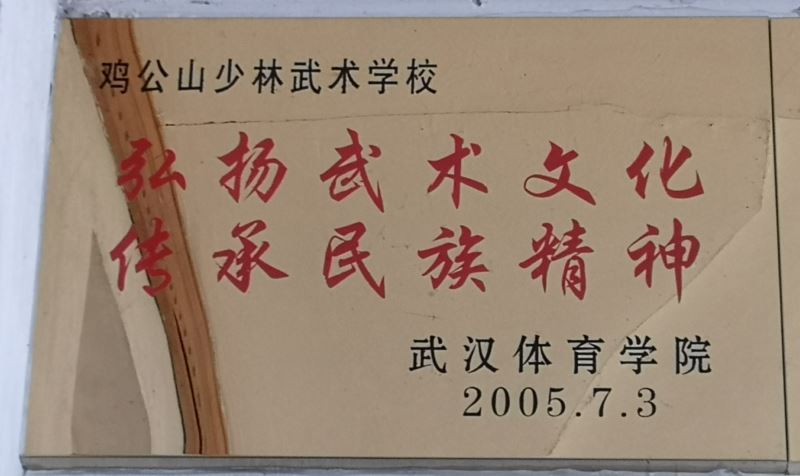 鸡公山少林武术学校
弘扬武术文化
传承民族精神
武汉体育学院
2005.7.3